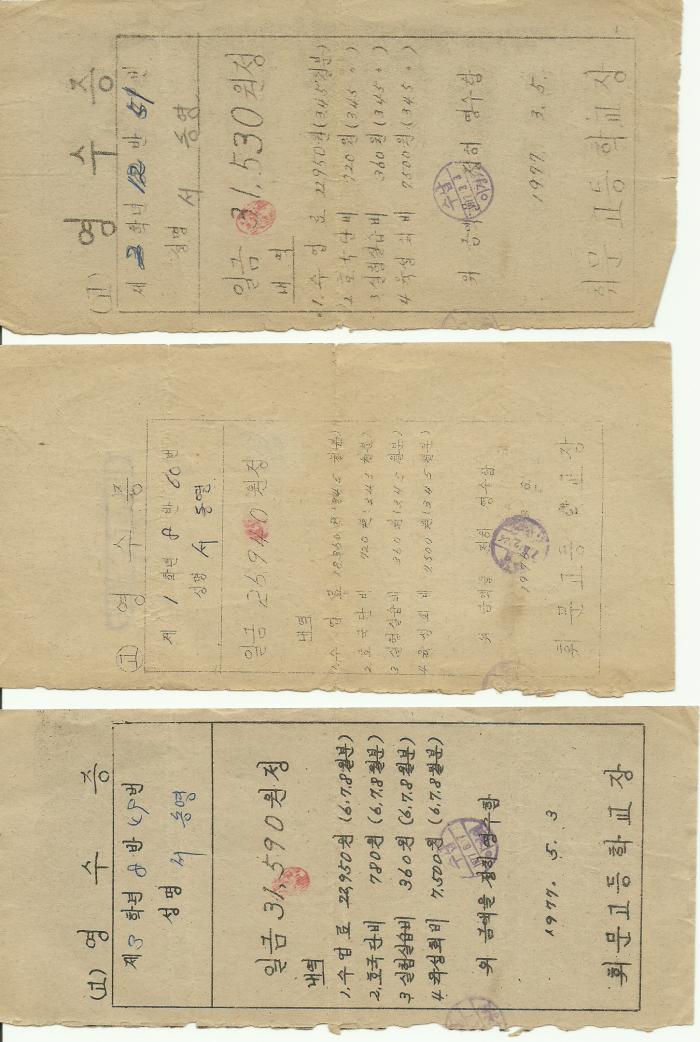 (고) 영 수 증
제 학년 반 51번
성명 서 동영
일금 31,530 원정
내역
1. 수 업 료 22,950원 (3.4.5 월분)
2. 호국단비 720원 (3.4.5 〃 )
3. 실험실습비 360원 (3.4.5 〃 )
4. 육성회비 7,500원 (3.4.5 〃 )
위 금액을 정히 영수함
1977. 3. 5.
휘 문 고 등 학 교 장
(고) 영 수 증
제 1 학년 8 반 60 번
성명 서 동영
일금 원정
내역
1. 수 업 료 원 (3.4.5 월분)
2. 호국단비 720 원 (3.4.5 월분)
3. 실험실습비 360 원 (3.4.5 월분)
4. 육성회비 7,500 원 (3.4.5 월분)
위 금액을 정히 영수함
휘 문 고 등 학 교 장
(고) 영 수 증
제 3 학년 8 반 번
성명 서 동영
일금 31,590 원정
내역
1. 수 업 료 22,950 원 (6,7,8월분)
2. 호국단비 780원 (6,7,8월분)
3. 실험실습비 360원 (6,7,8월분)
4. 육성회비 7,500원 (6,7,8월분)
위 금액을 정히 영수함
1977. 5. 3
휘 문 고 등 학 교 장